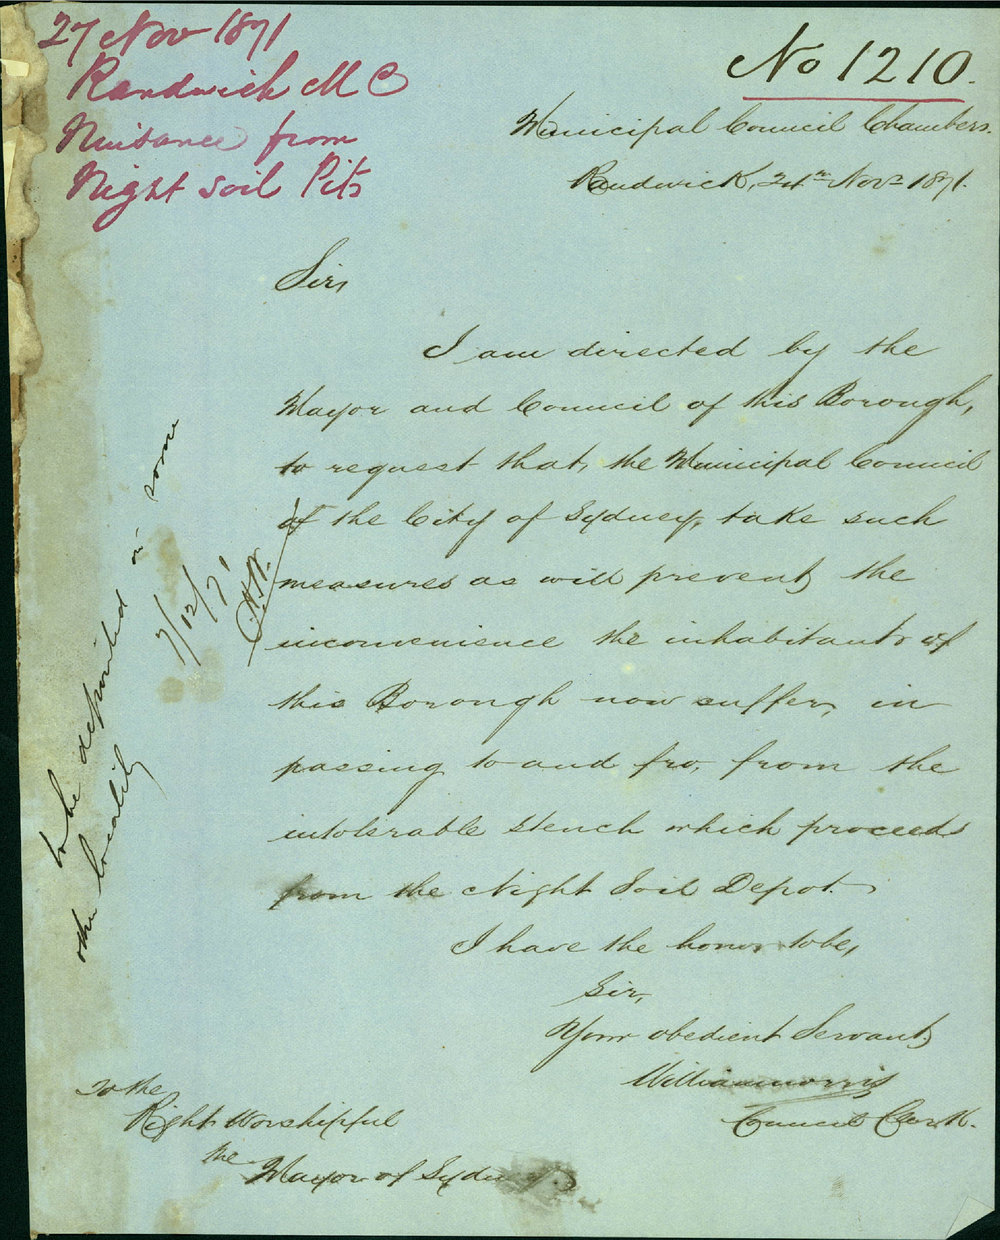 27 Nov 1871
Randwick M C
Nuisance from
Night Soil Pits
No 1210.
Municipal Council Chambers.
Randwick, 24th Novr 1871.
Sir,
I am directed by the
Mayor and Council of this Borough,
to request that, the Municipal Council
of the City of Sydney, take such
measures as will prevent, the
inconvenience the inhabitants of
this Borough now suffer, in
passing to and fro, from the
intolerable stench which proceeds
from the Night Soil Depot.
I have the honor to be,
Sir,
Your obedient Servant,
William Morris
Council Clerk.
To the
Right Worshipful
the Mayor of Sydney
to be deposited in some
other locality
7/12/71